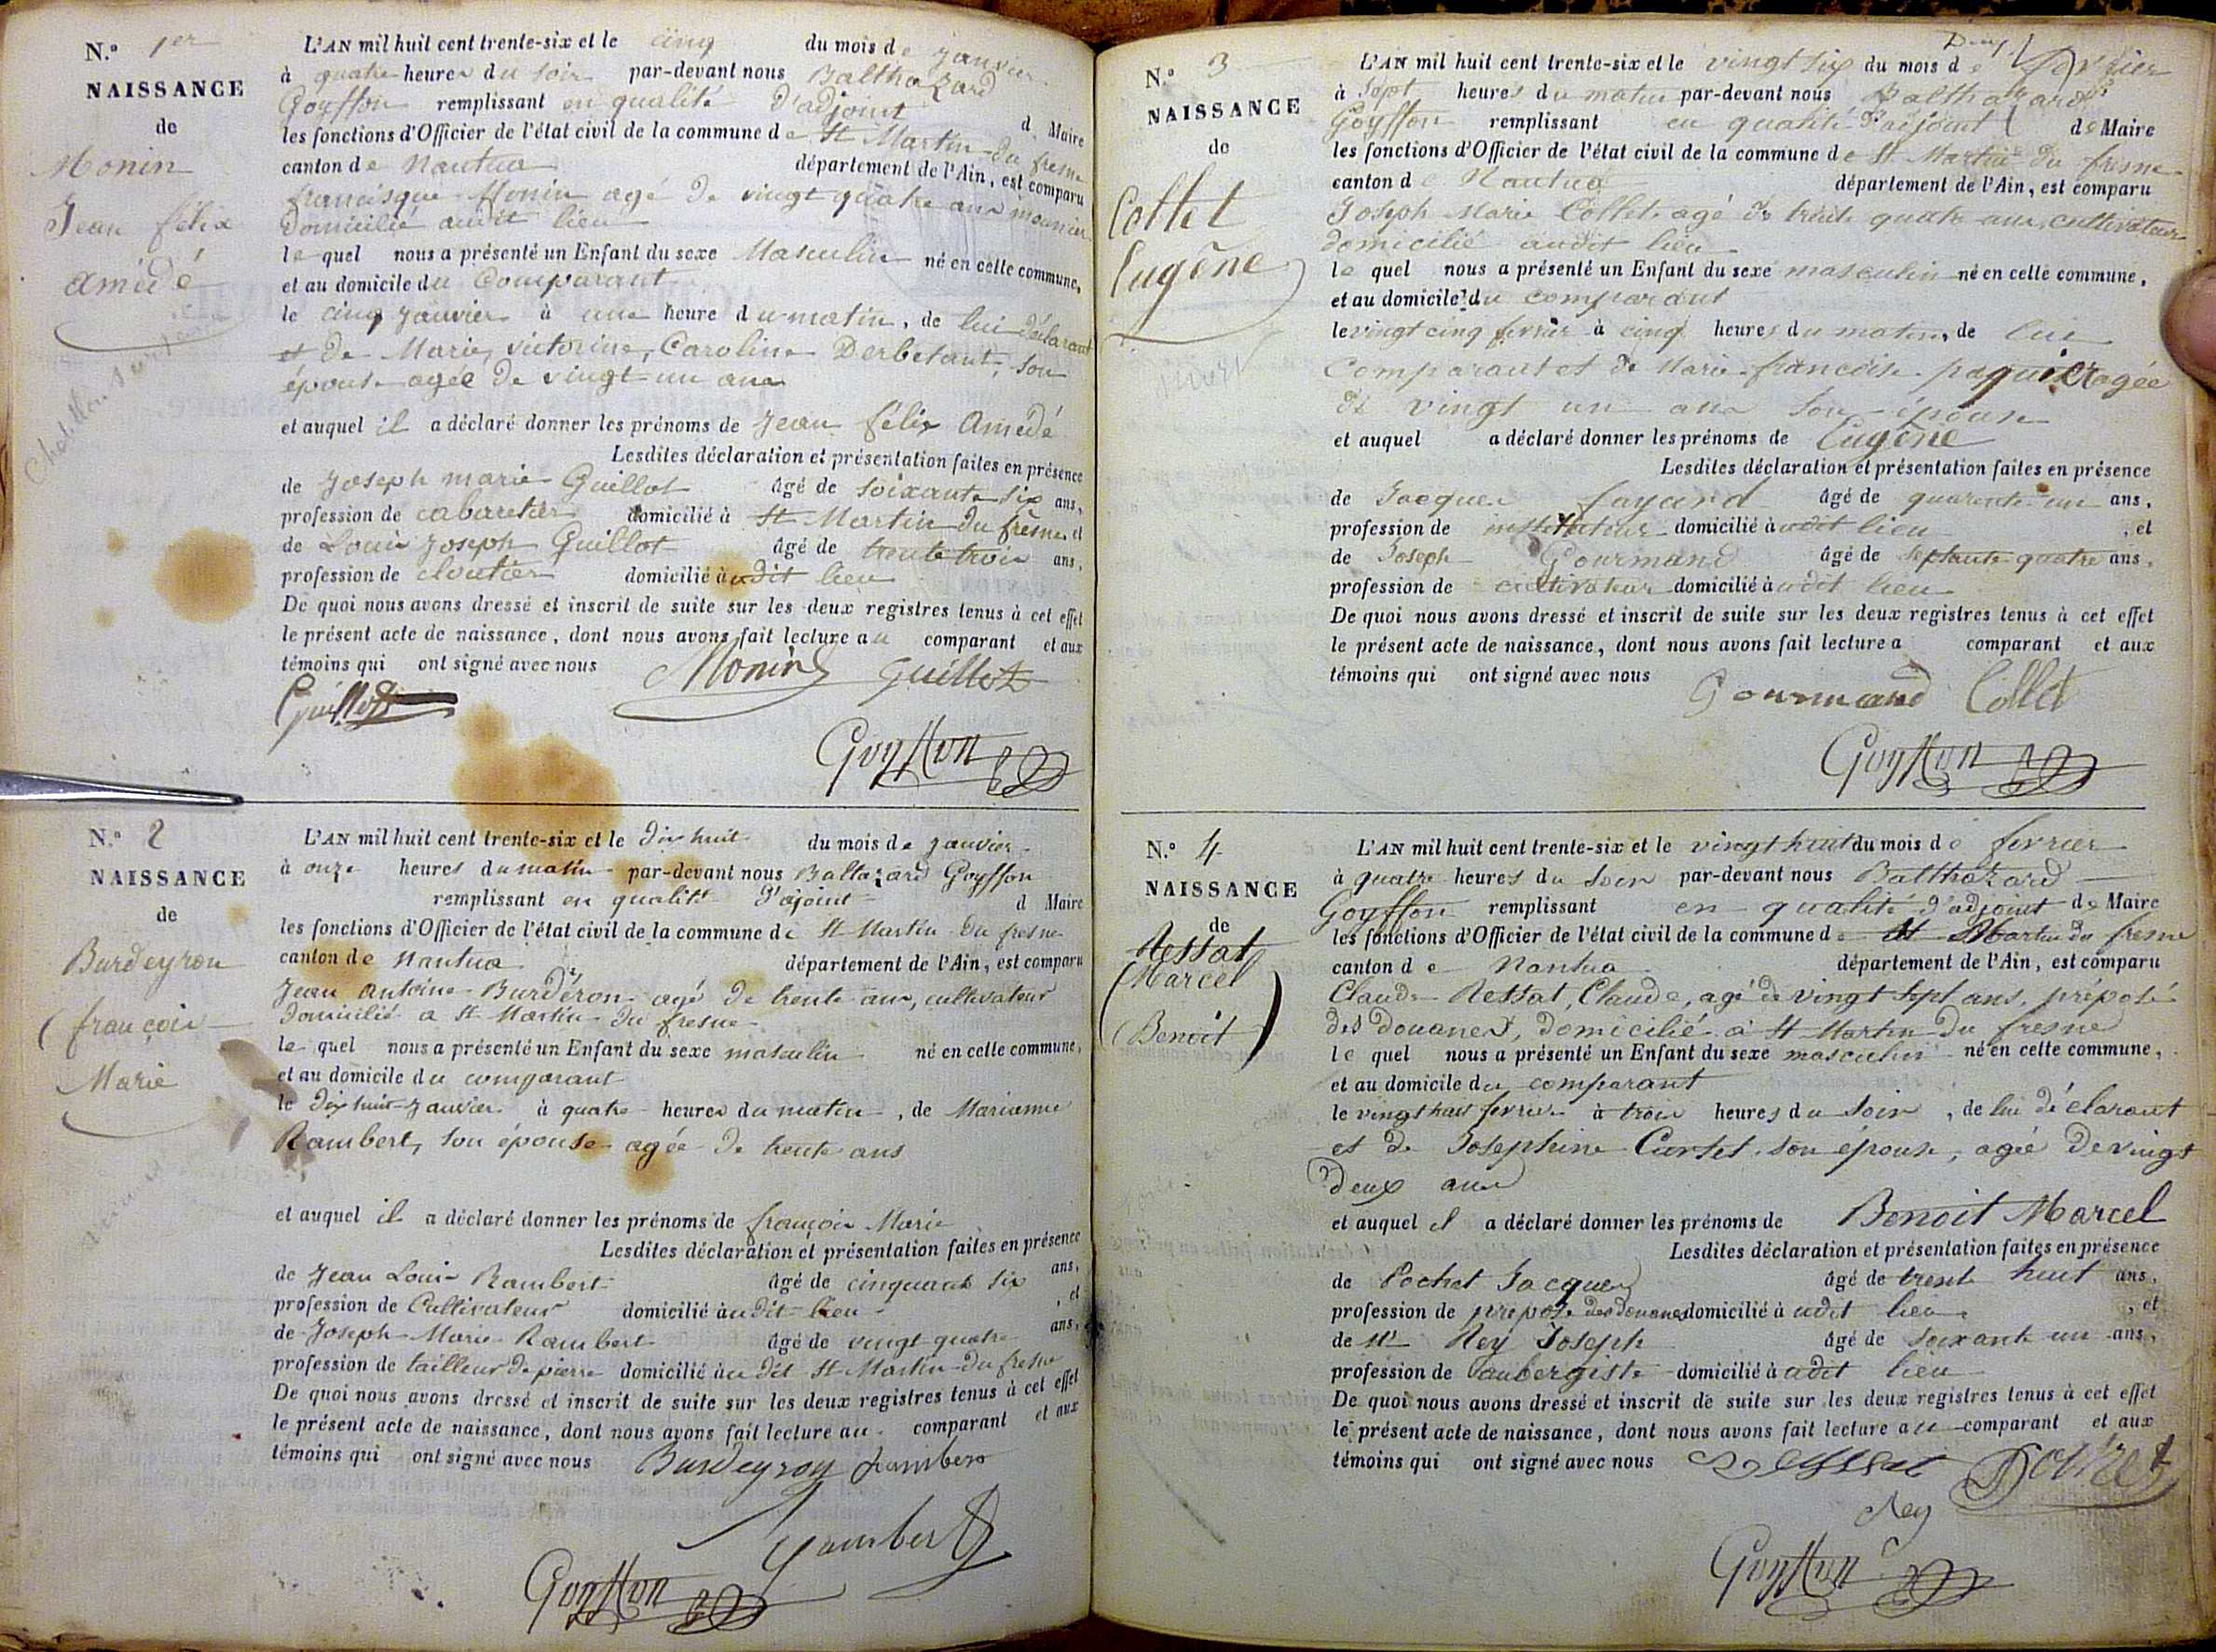 N.° 1er
NAISSANCE
de
Monin
Jean félix
amédé
L'AN mil huit cent trente-six et le cinq du mois de janvier
à quatre heures du soir par-devant nous Balthazard
Goyffon remplissant en qualité d'adjoint d. Maire
les fonctions d'Officier de l'état civil de la commune de St Martin du fresne
canton de Nantua département de l'Ain, est comparu
francisque Monin agé de vingt quatre ans meunier
domicilié audit lieu
le quel nous a présenté un Enfant du sexe Masculin né en cette commune,
et au domicile du Comparant
le cinq janvier à une heure du matin, de lui déclarant
et de Marie, victorine, Caroline Derbetant, son
épouse agée de vingt un ans
et auquel il a déclaré donner les prénoms de Jean félix Amédé
Lesdites déclaration et présentation faites en présence
de Joseph marie Guillot âgé de soixante six ans,
profession de cabaretier domicilié à St Martin du fresne, et
de Louis Joseph Guillot âgé de trente trois ans,
profession de cloutier domicilié audit lieu
De quoi nous avons dressé et inscrit de suite sur les deux registres tenus à cet effet
le présent acte de naissance, dont nous avons fait lecture au comparant et aux
témoins qui ont signé avec nous Monin Guillot
Guillot
Goyffon
N.° 2
NAISSANCE
de
Burdeyron
françois
Marie
L'AN mil huit cent trente-six et le dix huit du mois de janvier
à onze heures du matin par-devant nous Baltazard Goyffon
remplissant en qualité d'ajoint d Maire
les fonctions d'Officier de l'état civil de la commune de St Martin du fresne
canton de Nantua département de l'Ain, est comparu
Jean antoine Burdéron agé de trente ans, cultivateur
domicilié a St Martin du fresne
le quel nous a présenté un Enfant du sexe masculin né en cette commune,
et au domicile du comparant
le dix huit janvier à quatre heures du matin, de Marianne
Rambert, son épouse agée de trente ans
et auquel il a déclaré donner les prénoms de françois Marie
Lesdites déclaration et présentation faites en présence
de Jean Louis Rambert âgé de cinquante six ans,
profession de Cultivateur domicilié audit lieu, et
de Joseph Marie Rambert âgé de vingt quatre ans,
profession de tailleur de pierre domicilié au dit St Martin du fresne
De quoi nous avons dressé et inscrit de suite sur les deux registres tenus à cet effet
le présent acte de naissance, dont nous avons fait lecture au comparant et aux
témoins qui ont signé avec nous Burdeyron Rambert
Rambert
Goyffon
N.° 3
NAISSANCE
de
Collet
Eugène
L'AN mil huit cent trente-six et le vingt six du mois de fevrier
à sept heures du matin par-devant nous Balthazard
Goyffon remplissant en qualité d'adjoint de Maire
les fonctions d'Officier de l'état civil de la commune de St Martin du fresne
canton de Nantua département de l'Ain, est comparu
Joseph Marie Collet agé de trente quatre ans, cultivateur
domicilié audit lieu
le quel nous a présenté un Enfant du sexe masculin né en cette commune,
et au domicile du comparant
le vingt cinq fevrier à cinq heures du matin, de lui
Comparant et de Marie francoise paquier agée
de vingt un ans son épouse
et auquel a déclaré donner les prénoms de Eugène
Lesdites déclaration et présentation faites en présence
de Jacques fayard âgé de quarente un ans,
profession de instituteur domicilié audit lieu, et
de Joseph Gourmand âgé de septante quatre ans,
profession de cultivateur domicilié audit lieu
De quoi nous avons dressé et inscrit de suite sur les deux registres tenus à cet effet
le présent acte de naissance, dont nous avons fait lecture a comparant et aux
témoins qui ont signé avec nous
Gourmand Collet
Goyffon
N.° 4
NAISSANCE
de
Ressat
(Marcel
Benoit)
L'AN mil huit cent trente-six et le vingt huit du mois de fevrier
à quatre heures du soir par-devant nous Balthazard
Goyffon remplissant en qualité d'adjoint de Maire
les fonctions d'Officier de l'état civil de la commune de St Martin du fresne
canton de Nantua département de l'Ain, est comparu
Claude Ressat, Claude, agé de vingt sept ans, préposé
des douanes, domicilié à St Martin du fresne
le quel nous a présenté un Enfant du sexe masculin né en cette commune,
et au domicile du comparant
le vingt huit fevrier à trois heures du soir, de lui déclarant
et de Josephine Curtet son épouse, agée de vingt
deux ans
et auquel il a déclaré donner les prénoms de Benoit Marcel
Lesdites déclaration et présentation faites en présence
de Pochet Jacques âgé de trente huit ans,
profession de préposé des douanes domicilié audit lieu, et
de Rey Joseph âgé de soixante un ans,
profession de aubergiste domicilié à udit lieu
De quoi nous avons dressé et inscrit de suite sur les deux registres tenus à cet effet
le présent acte de naissance, dont nous avons fait lecture au comparant et aux
témoins qui ont signé avec nous Ressat Pochet
Rey
Goyffon